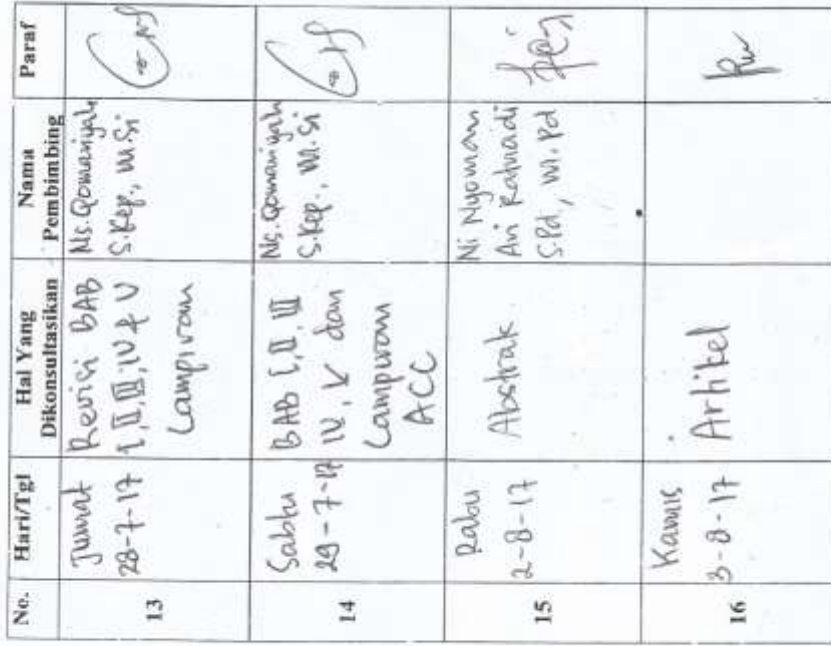 No. Hari/Tgl Hal Yang Dikonsultasikan Nama Pembimbing Paraf
13
Jumat
28-7-17
Revisi BAB
I, II, III, IV & V
Lampiran
Ns. Qomariyah
S.Kep., M.Si
14
Sabtu
29-7-17
BAB I, II, III
IV, V dan
Lampiran
ACC
Ns. Qomariyah
S.Kep., M.Si
15
Rabu
2-8-17
Abstrak
Ni Nyoman
Ari Ratnadi
S.Pd., M.Pd
16
Kamis
3-8-17
Artikel